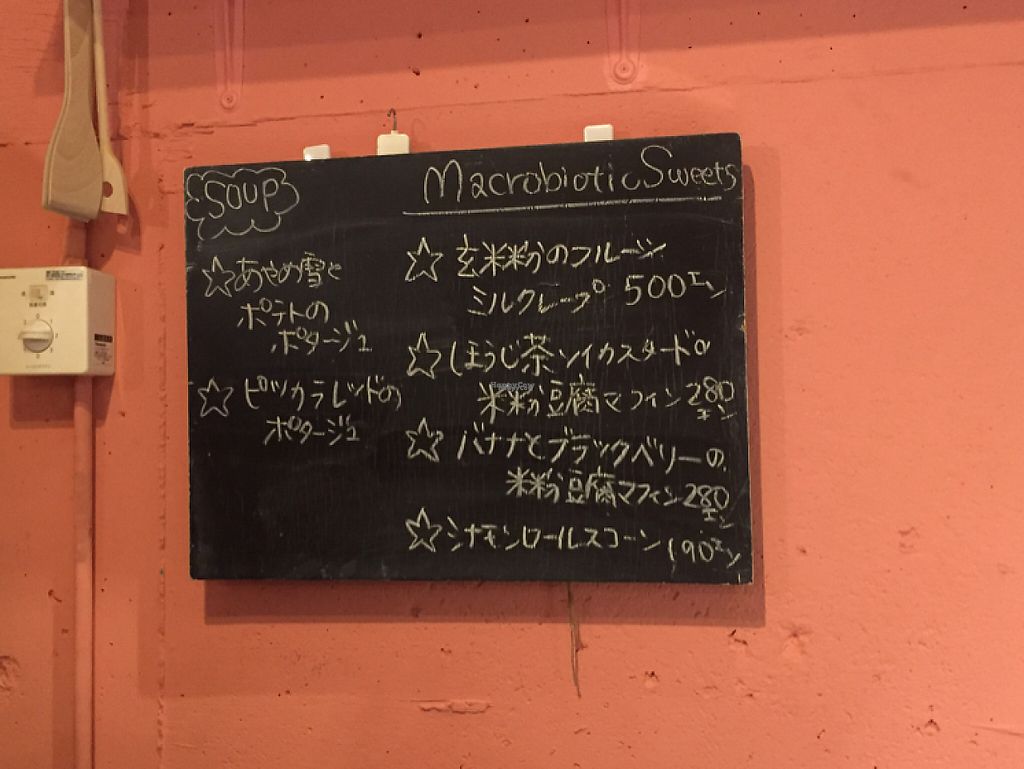 SOUP
☆あやめ雪と
ポテトの
ポタージュ
☆ピッカラレッドの
ポタージュ
Macrobiotic Sweets
☆玄米粉のフルーツ
ミルクレープ 500エン
☆ほうじ茶ソイカスタードの
米粉豆腐マフィン280エン
☆バナナとブラックベリーの
米粉豆腐マフィン280エン
☆シナモンロールスコーン190エン
HappyCow